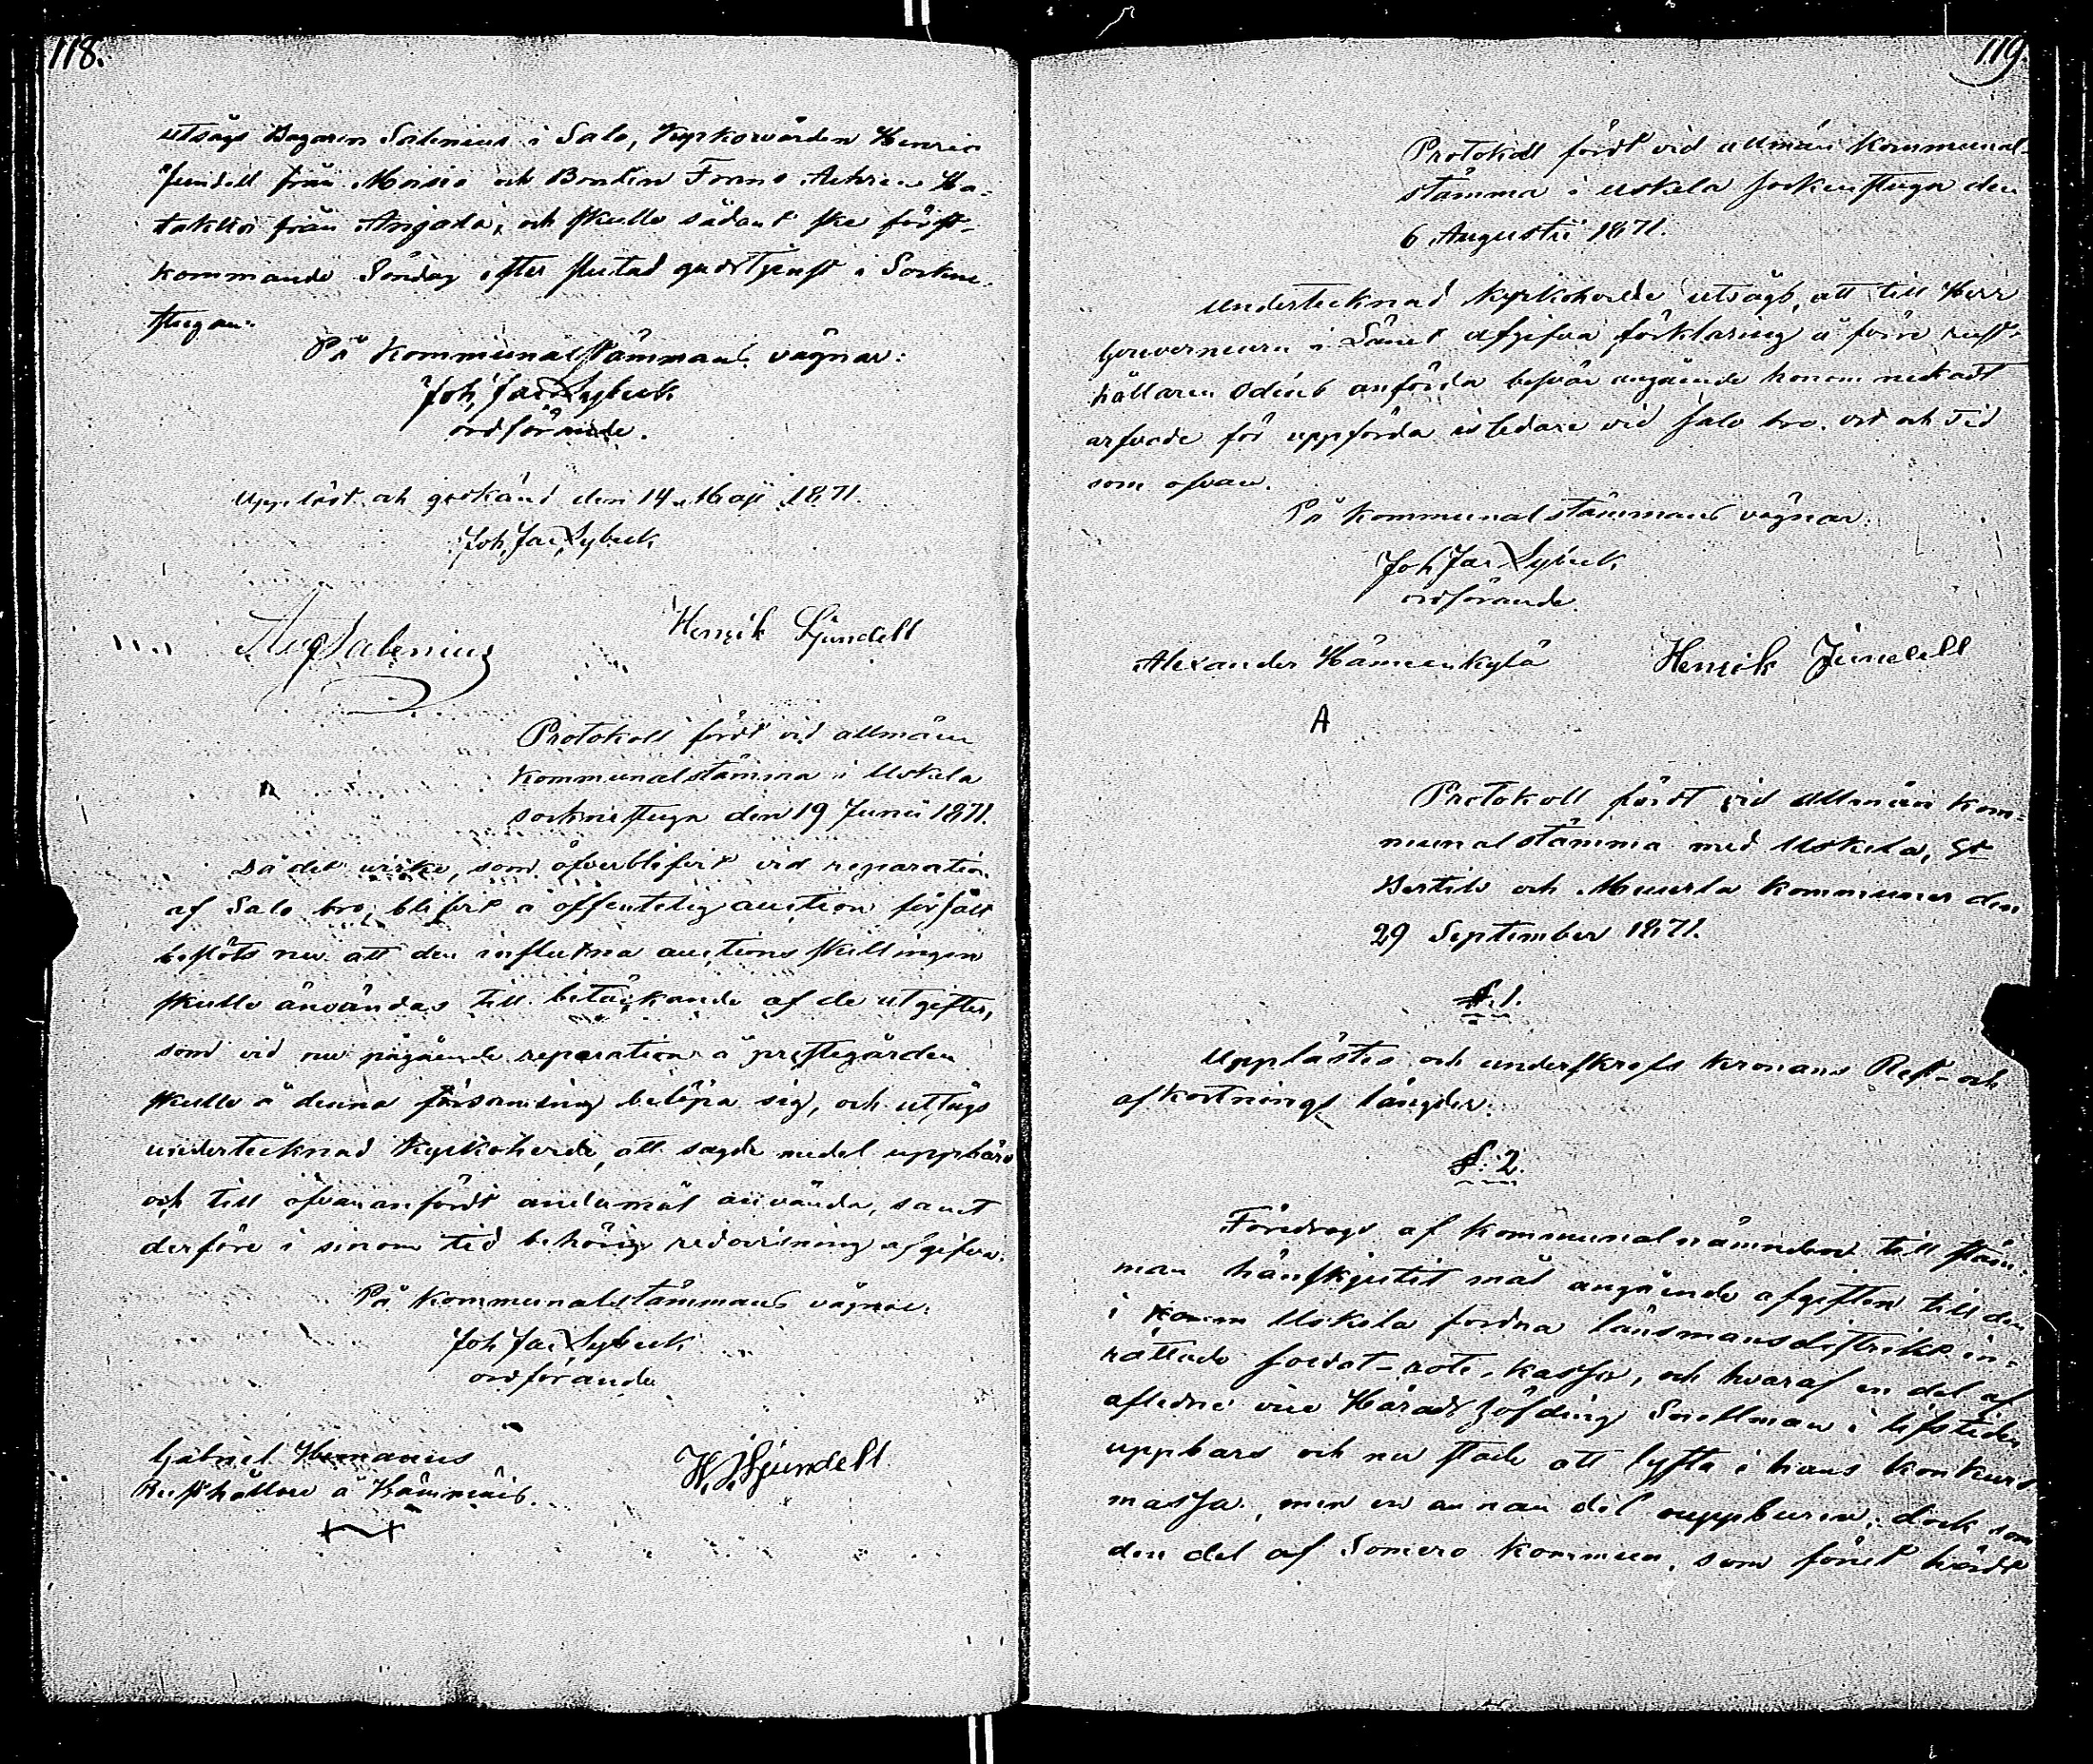 118.
utsågs Bagaren Salenius i Salo, Kyrkovärden Henric
Jundell från Moisio och Bonden Frans
från Anjala, och skulle sådant ske först-
kommande Söndag efter slutad gudstjenst i Sockne-
stugan.
På Kommunalstämmans vägnar:
Joh. Jac. Lybeck
ordförande.
Uppläst och godkänd den 14 Maji 1871.
Joh. Jac. Lybeck
Aug Salenius
Henrik Sjundell
Protokoll fördt vid allmän
Kommunalstämma i Uskela
socknestuga den 19 Junii 1871.
Då det virke, som öfverblifvit vid reparation
af Salo bro, blifvit å offentelig auction försålt
beslöts nu att den influtna auctions skillingen
skulle användas till betäckande af de utgifter,
som vid nu pågående reparation å prestegården
skulle å denna församling belöpa sig, och uttogs
undertecknad Kyrkoherde, att sagde medel uppbära
och till ofvananfördt ändamål använda, samt
derföre i sinom tid behörig redovisning afgifva.
På Kommunalstämmans vägnar:
Joh Jac Lybeck
ordförande
Gabriel Hemanus
Rusthållare å Hämmäis.
H. Sjundell
119.
Protokoll fördt vid allmän Kommunal-
stämma i Uskela sockenstuga den
6 Augusti 1871.
Undertecknad Kyrkoherde utsågs, att till Herr
Gouverneuren i Länet afgifva förklaring å förre rust-
hållaren Odéns anförda besvär angående honom nekadt
arfvode för uppförda isledare vid Salo bro. Ort och tid
som ofvan.
På Kommunalstämmans vägnar:
Joh Jac Lybeck
ordförande.
Alexander Hämeenkylä
Henrik Jundell
A
Protokoll fördt vid Allmän Kom-
munalstämma med Uskela, St
Bertils och Muurla Kommuner den
29 September 1871.
§. 1.
Upplästes och underskrefs Kronans Rest- och
afkortnings längder.
§. 2.
Föredrogs af Kommunalnämnden till stäm-
man hänskjutit mål angående afgiften till den
i Uskela fordna länsmansdistrikt in-
rättade soldat-rote-kassa, och hvaraf en del af
aflidne vice Häradshöfding Snellman i lifstiden
uppbars och nu stode att lyfta i hans konkurs
massa, men en annan del ouppburen; dock som
den del af Somero Kommun, som förut hördt